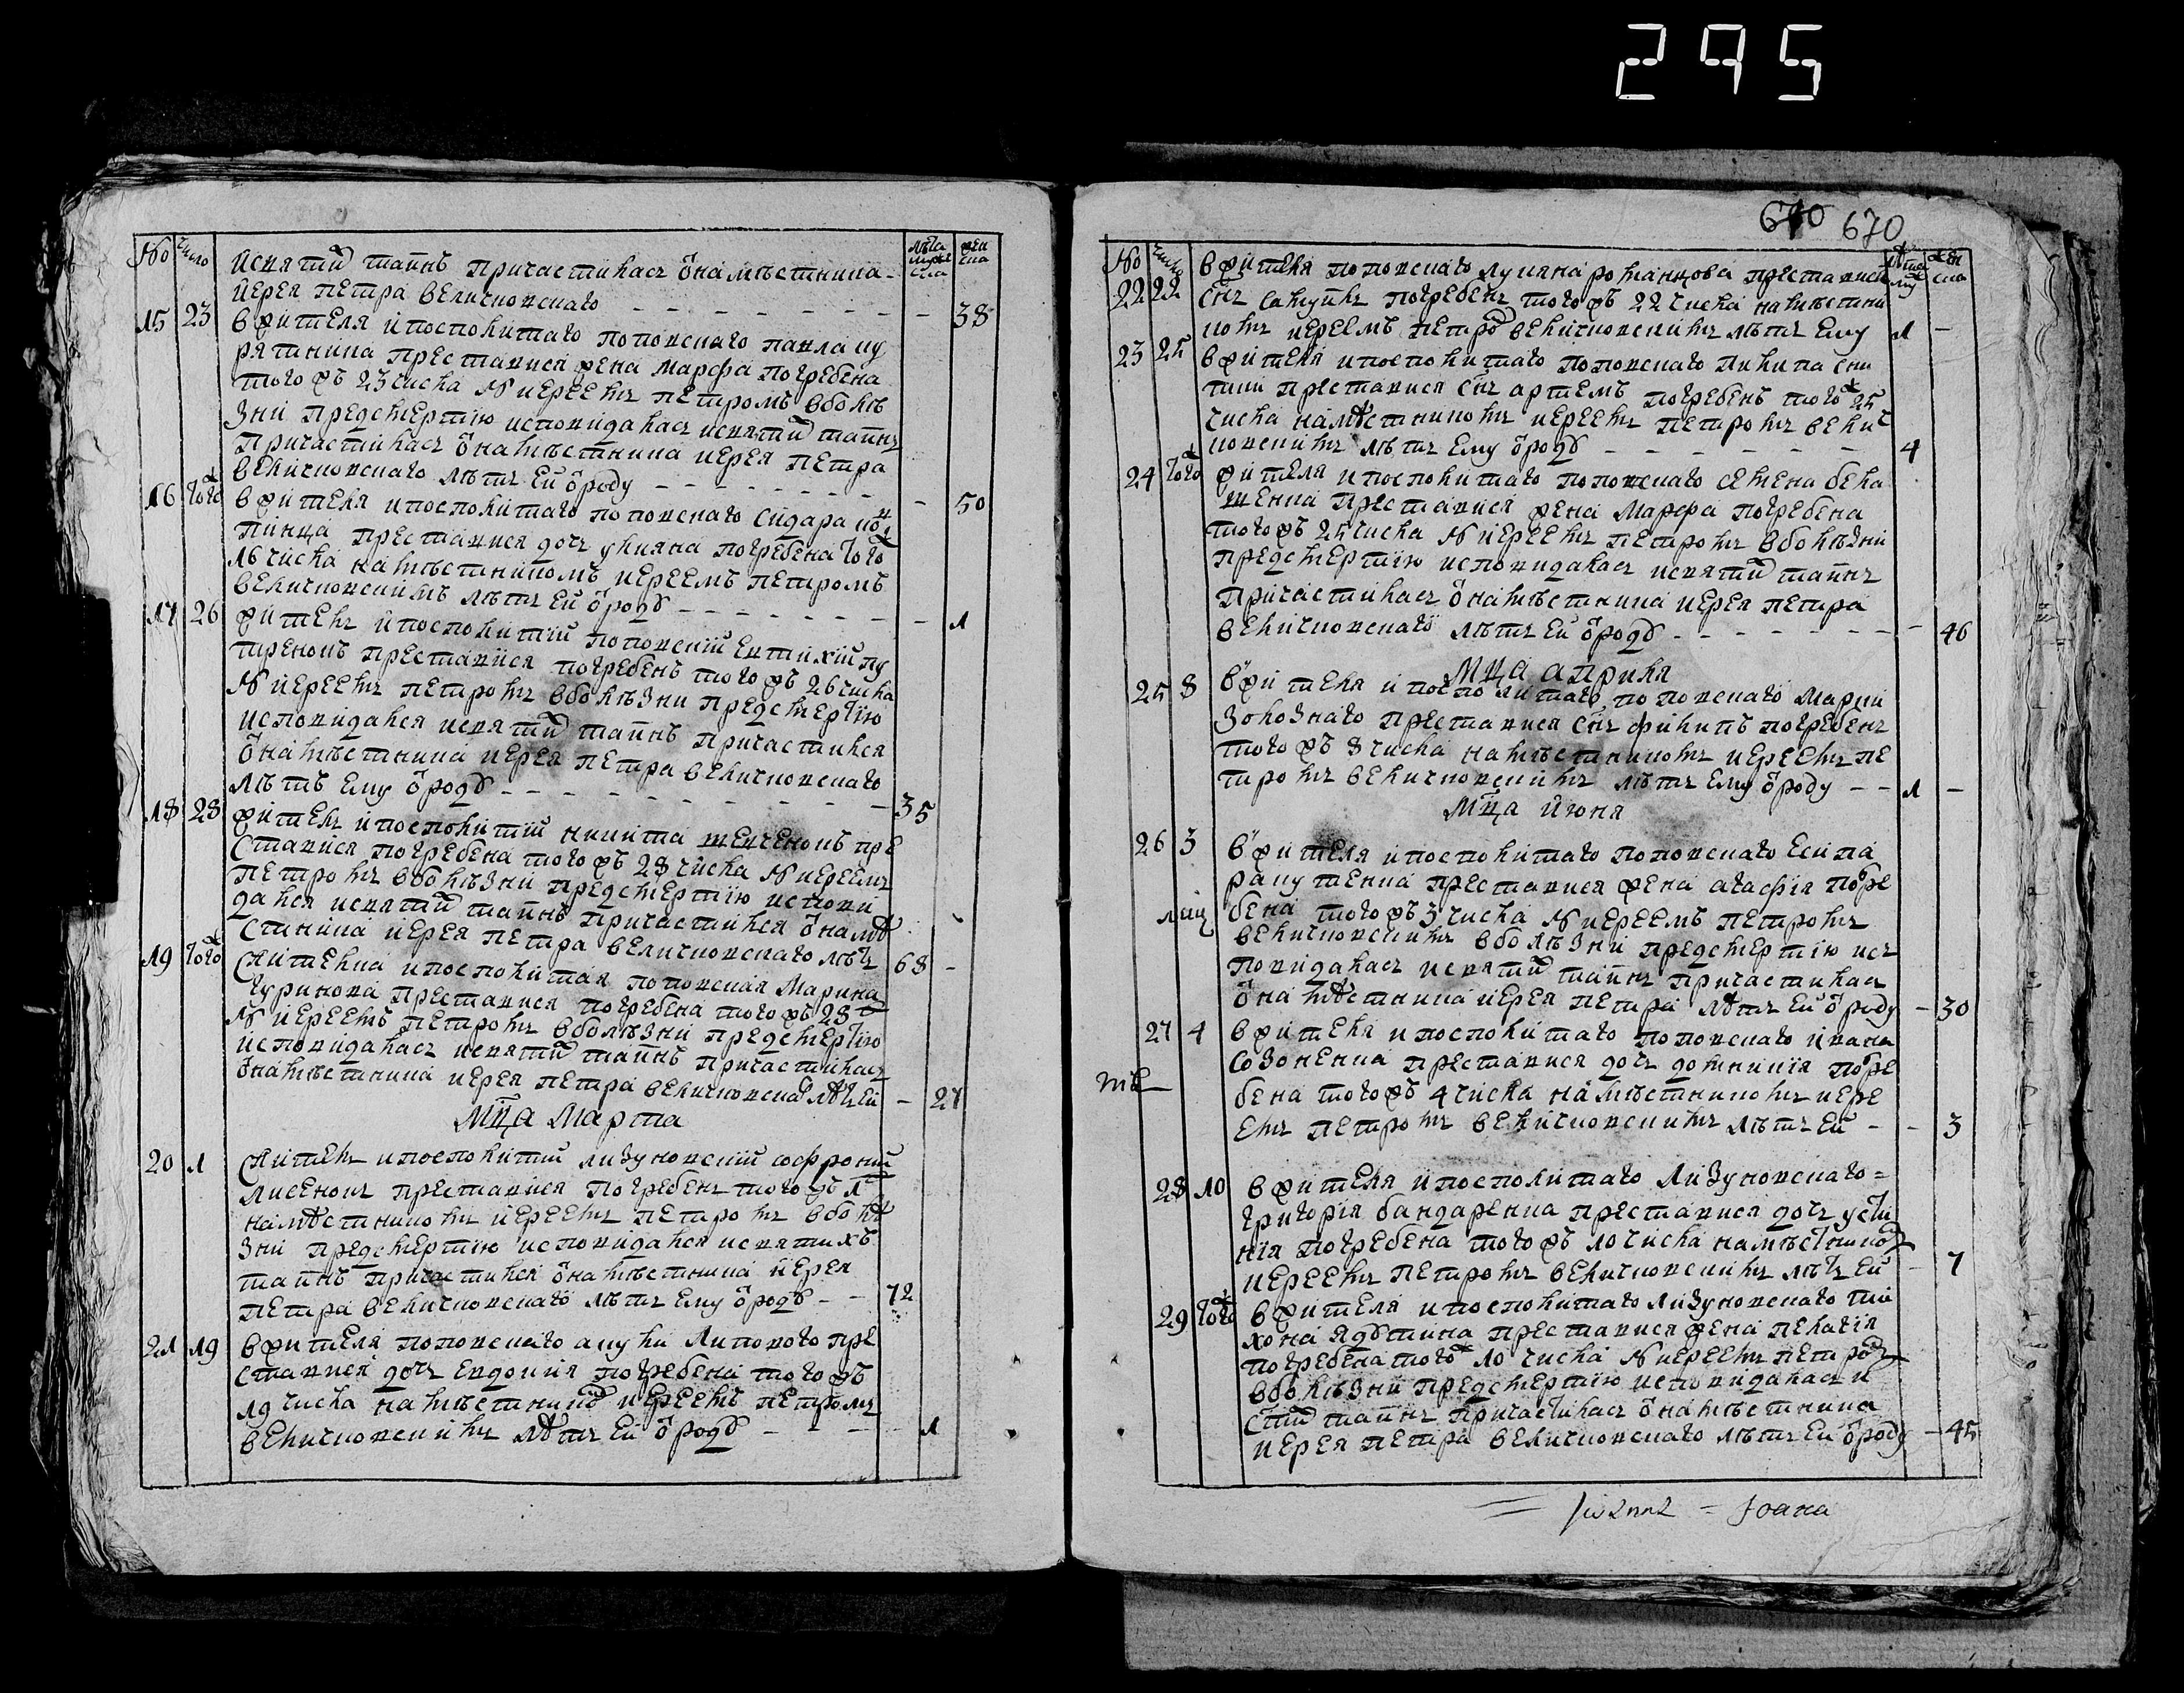 295
No число лѣта мужеска женска
исвятий таинъ причастиласъ ѿнамѣстника
иерея петра величковскаго 38
15 23 вжителя ипосполитаго поповскаго павла
преставися жена марфа погребена
тогожъ 23 числа иереемъ петромъ вболѣ
зни предсмертію исповидаласъ исвятий таинъ
причастиласъ ѿнамѣстника иерея петра
величковскаго лѣтъ ей ѿроду 50
16 тогож вжителя ипосполитаго поповскаго сидара
преставися дочъ улияна погребена тогож
числа намѣстникомъ иереемъ петромъ
величковскимъ лѣтъ ей ѿроду 1
17 26 жителъ ипосполитїй поповскїй евтихїй
преставися погребенъ тогожъ 26 числа
иереемъ петромъ вболѣзни предсмертїю
исповидался исвятий таинъ причастился
ѿнамѣстника иерея петра величковскаго
лѣтъ ему ѿроду 35
18 28 жителъ ипосполитїй никита шевченокъ пре
ставися погребена тогожъ 28 числа иереемъ
петромъ вболѣзни предсмертїю испови
дался исвятий таинъ причастился ѿнамѣ
стника иерея петра величковскаго лѣтъ 68
19 тогож жителка ипосполитая поповская марина
чуринова преставися погребена тогожъ 28
иереемъ петромъ вболѣзни предсмертїю
исповидаласъ исвятий таинъ причастиласъ
ѿнамѣстника иерея петра величковска лѣтъ ей 27
Мца Марта
20 1 жителъ ипосполитий лизуновскїй софроний
лисенокъ преставися погребенъ тогожъ 1
намѣстникомъ иереемъ петромъ вболѣ
зни предсмертїю исповидался исвятихъ
таинъ причастился ѿнамѣстника иерея
петра величковскаго лѣтъ ему ѿроду 72
21 19 вжителя поповскаго луки липового пре
ставися дочъ евдокия погребена тогожъ
19 числа намѣстником иереемъ петромъ
величковскимъ лѣтъ ей ѿроду 1
670 670
No число лѣта муж женска
22 22 вжителя поповскаго лукяна романцова преставися
снъ погребенъ тогожъ 22 числа намѣстни
комъ иереемъ петром величковскимъ лѣтъ ему 1
23 25 вжителя ипосполитаго поповскаго
преставися снъ артемъ погребенъ тогож 25
числа намѣстникомъ иереемъ петромъ велич
ковскимъ лѣтъ ему ѿроду 4
24 тогож жителя ипосполитаго поповскаго семена
преставися жена марфа погребена
тогожъ 25 числа иереемъ петромъ вболѣзни
предсмертїю исповидаласъ исвятий таинъ
причастиласъ ѿнамѣстника иерея петра
величковскаго лѣтъ ей ѿроду 46
Мца априля
25 8 вжителя ипосполитаго поповскаго марки
золозного преставися снъ филипъ погребенъ
тогожъ 8 числа намѣстникомъ иереемъ пе
тромъ величковскимъ лѣтъ ему ѿроду 1
Мца июня
26 3 вжителя ипосполитаго поповскаго есипа
преставися жена агафїя погре
бена тогожъ 3 числа иереемъ петромъ
величковскимъ вболѣзни предсмертїю ис
повидаласъ исвятий таинъ причастиласъ
ѿнамѣстника иерея петра лѣтъ ей ѿроду 30
27 4 вжителя ипосполитаго поповскаго ивана
созоненка преставися дочъ домникия погре
бена тогожъ 4 числа намѣстникомъ иере
емъ петромъ величковскимъ лѣтъ ей 3
28 10 вжителя ипосполитаго лизуновскаго
григорїя бандаренка преставися дочъ усти
нїя погребена тогожъ 10 числа намѣстником
иереемъ петромъ величковскимъ лѣтъ ей 7
29 тогож вжителя ипосполитаго лизуновскаго ти
хона преставися жена пелагїя
погребена тогож 10 числа иереемъ петром
вболѣзни предсмертїю исповидаласъ и
стий таинъ причастиласъ ѿнамѣстника
иерея петра величковскаго лѣтъ ей ѿроду 45